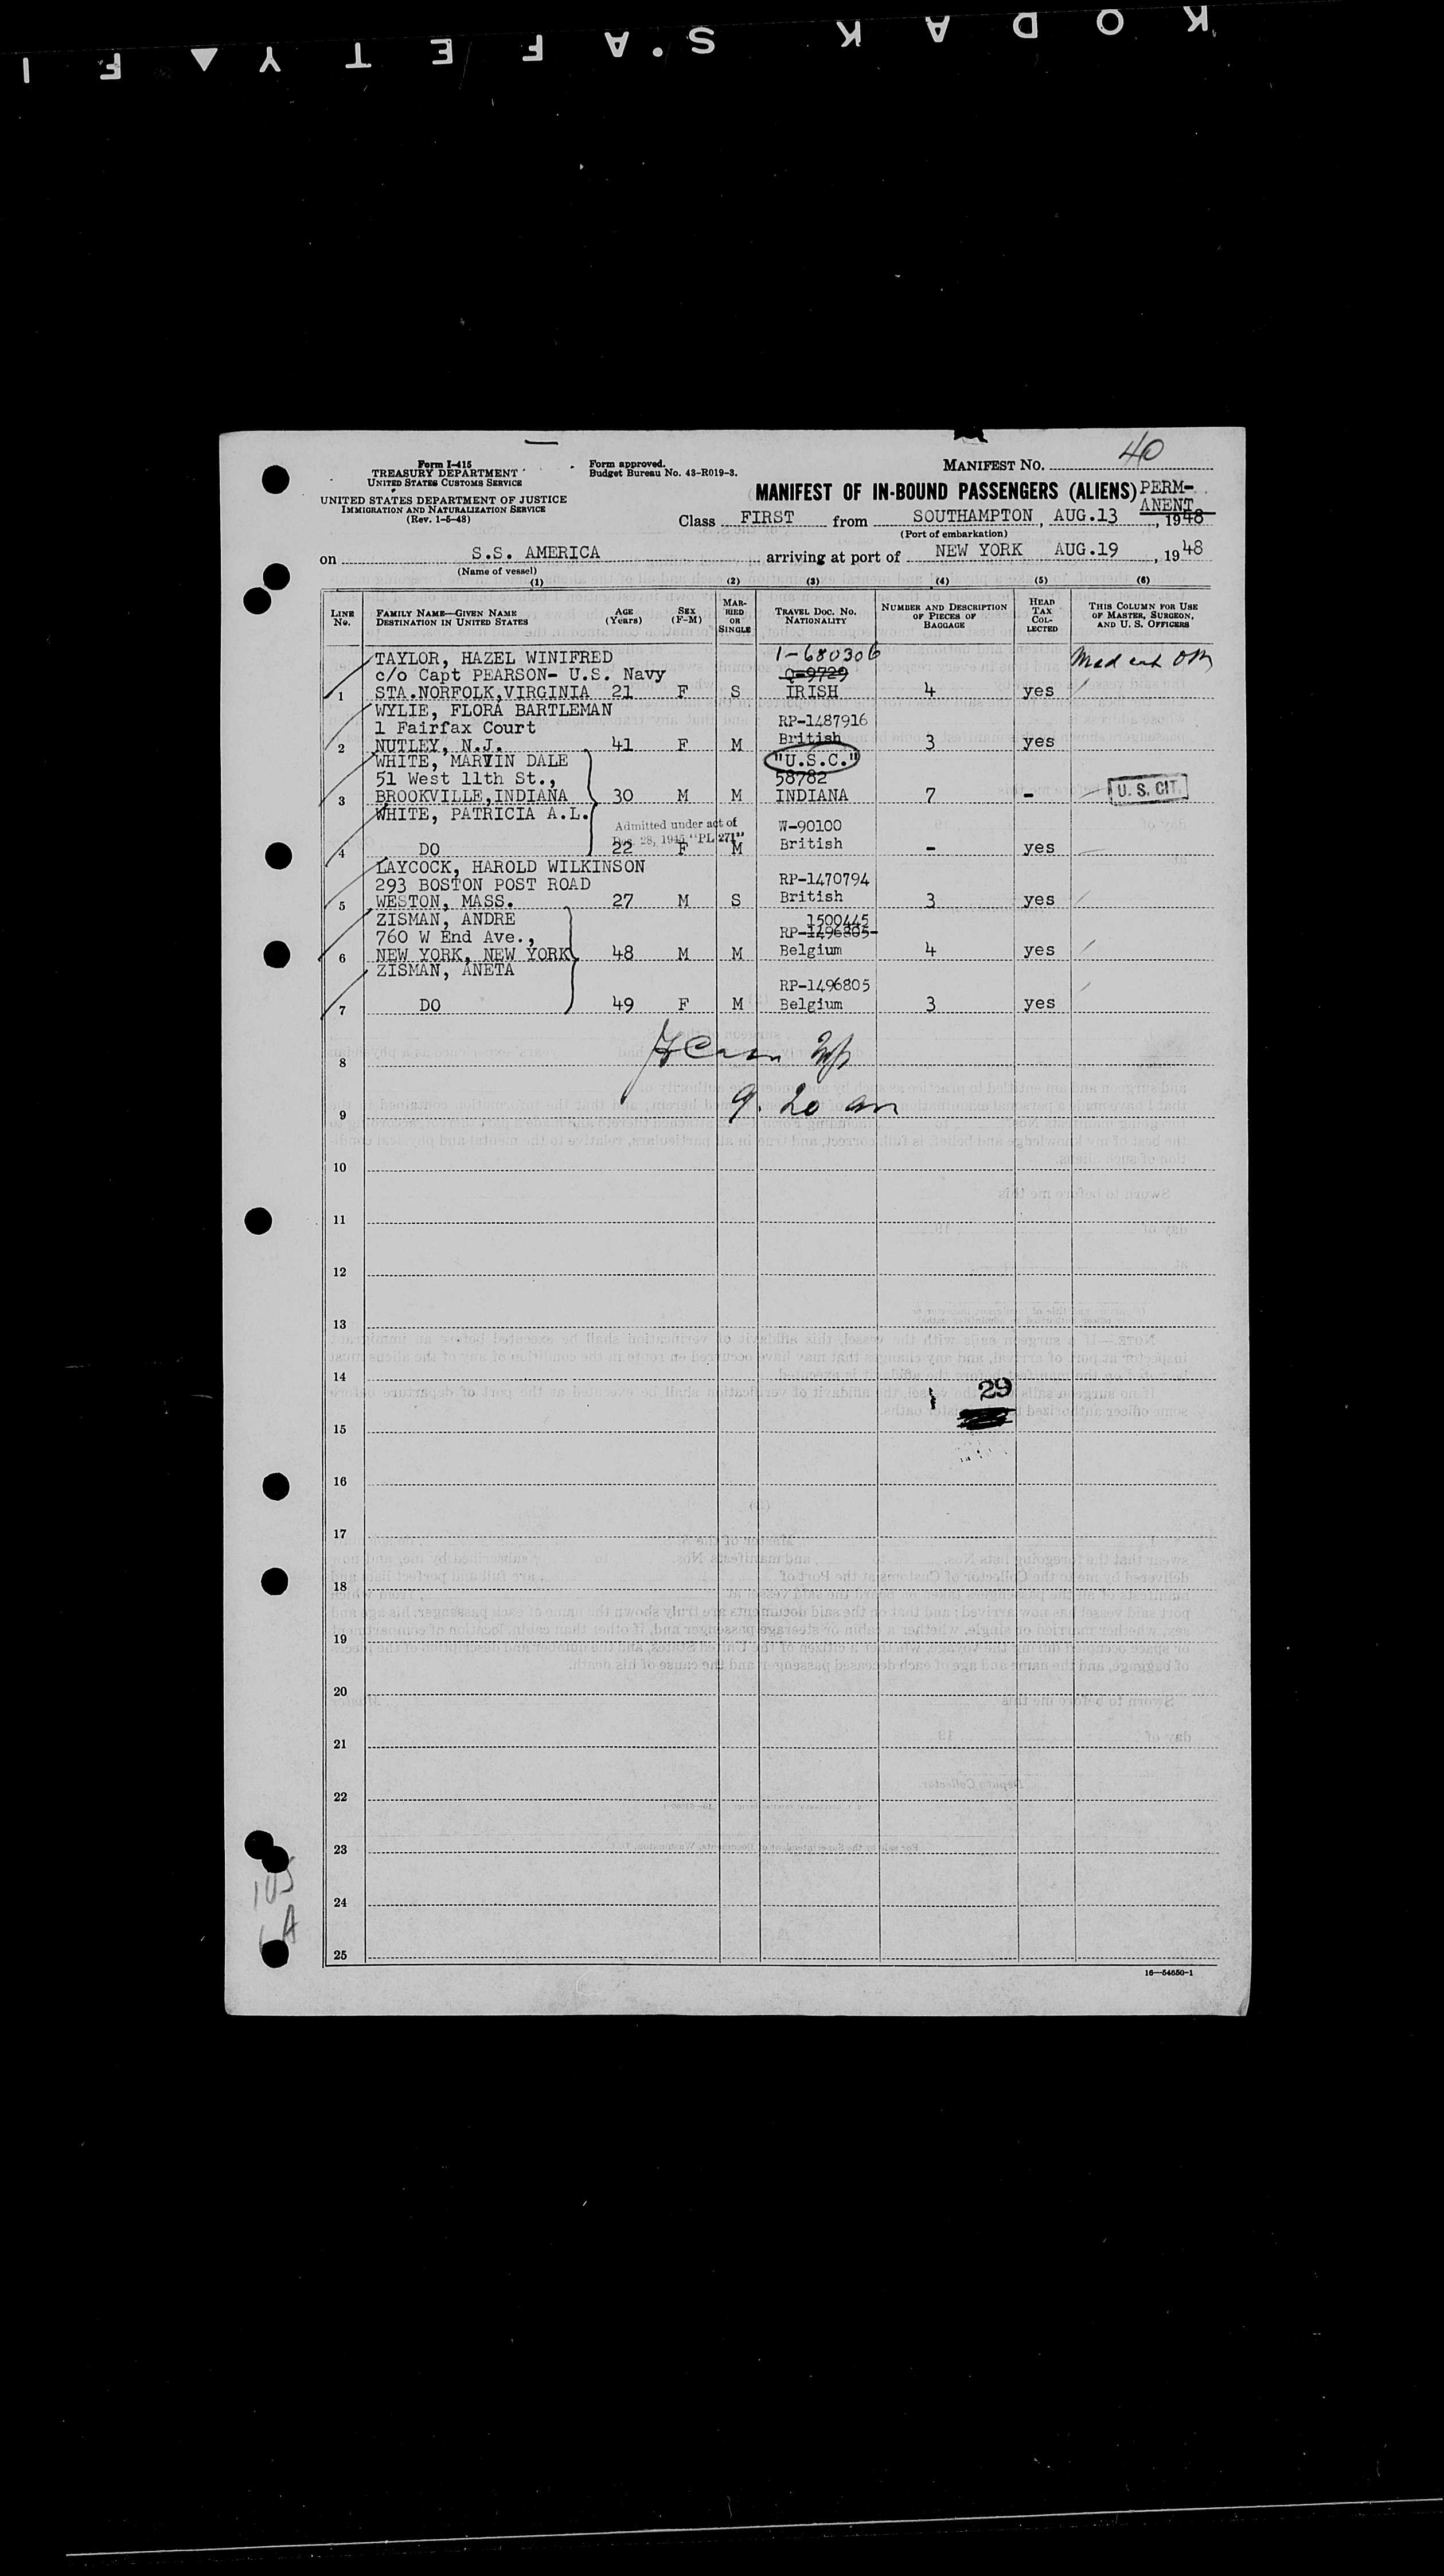 KODAK SAFETY FI
40
Form I-415
TREASURY DEPARTMENT
UNITED STATES CUSTOMS SERVICE
UNITED STATES DEPARTMENT OF JUSTICE
IMMIGRATION AND NATURALIZATION SERVICE
(Rev. 1-5-48)
Form approved.
Budget Bureau No. 43-R019-3.
MANIFEST NO.
MANIFEST OF IN-BOUND PASSENGERS (ALIENS) PERM-
ANENT
Class FIRST from SOUTHAMPTON, AUG.13, 1948
(Port of embarkation)
on S.S. AMERICA arriving at port of NEW YORK AUG.19, 1948
(Name of vessel)
(1) (2) (3) (4) (5) (6)
LINE No. FAMILY NAME—GIVEN NAME DESTINATION IN UNITED STATES AGE (Years) SEX (F-M) MARRIED OR SINGLE TRAVEL DOC. NO. NATIONALITY NUMBER AND DESCRIPTION OF PIECES OF BAGGAGE HEAD TAX COLLECTED THIS COLUMN FOR USE OF MASTER, SURGEON, AND U. S. OFFICERS
TAYLOR, HAZEL WINIFRED 1-680306
c/o Capt PEARSON- U.S. Navy Q-9729
1 STA.NORFOLK,VIRGINIA 21 F S IRISH 4 yes
WYLIE, FLORA BARTLEMAN
1 Fairfax Court RP-1487916
2 NUTLEY, N.J. 41 F M British 3 yes
WHITE, MARVIN DALE "U.S.C."
51 West 11th St., 58782
3 BROOKVILLE,INDIANA 30 M M INDIANA 7 - U. S. CIT.
WHITE, PATRICIA A.L. W-90100
Admitted under act of
Dec. 28, 1945 "PL 271"
4 DO 22 F M British - yes
LAYCOCK, HAROLD WILKINSON
293 BOSTON POST ROAD RP-1470794
5 WESTON, MASS. 27 M S British 3 yes
ZISMAN, ANDRE 1500445
760 W End Ave., RP-1496805-
6 NEW YORK, NEW YORK 48 M M Belgium 4 yes
ZISMAN, ANETA RP-1496805
7 DO 49 F M Belgium 3 yes
8
9 9.20 am
10
11
12
13
14
29
15
16
17
18
19
20
21
22
23
24
25
16—54650-1